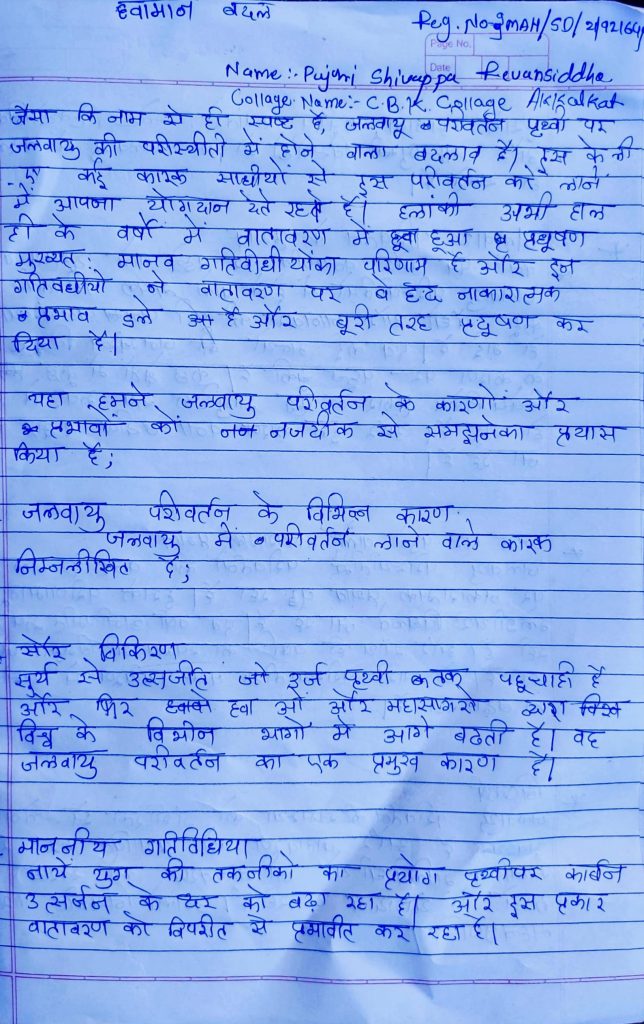 हवामान बदल
Reg. No:- MAH/SD/2192164
Page No.
Date
Name:- Pujari Shivappa Revansiddha
Collage Name:- C.B.K. Collage Akkalkot
जैसा कि नाम से ही स्पष्ट है, जलवायू परीवर्तन पृथ्वी पर
जलवायु की परीस्थीती में होने वाला बदलाव है। इस के ली
ए कई कारक साधीयों से इस परीवर्तन को लाने
में आपना योगदान देते रहते है। हलांकी अभी हाल
ही के वर्षो में वातावरण में हूआ प्रधूषण
मुख्यत: मानव गतिवीधीयोंका परिणाम है और इन
गतिवधीयो ने वातावरण पर वेहद नाकारात्मक
प्रभाव डले है और बूरी तरह प्रदूषण कर
दिया है।
यहा हमने जलवायु परीवर्तन के कारणों और
प्रभावों कों नजदीक से समझनेका प्रयास
किया है;
जलवायु परीवर्तन के विभिन्न कारण
जलवायु में परीवर्तन लाने वाले कारक
निम्नलीखित है;
सौर विकिरण
सूर्य से उत्सर्जीत जो उर्ज पृथ्वी तक पहूचाही है
और फिर हवा ओ और महासागरो द्वारा
विश्व के विभीन भागों मे आगे बढती है। वह
जलवायु परीवर्तन का एक प्रमुख कारण है।
माननीय गतिविधिया
नाये युग की तकनीको का प्रयोग पृथ्वीपर कार्बन
उत्सर्जन के दर को बढा रहा है। और इस प्रकार
वातावरण को विपरीत से प्रभावीत कर रहा है।